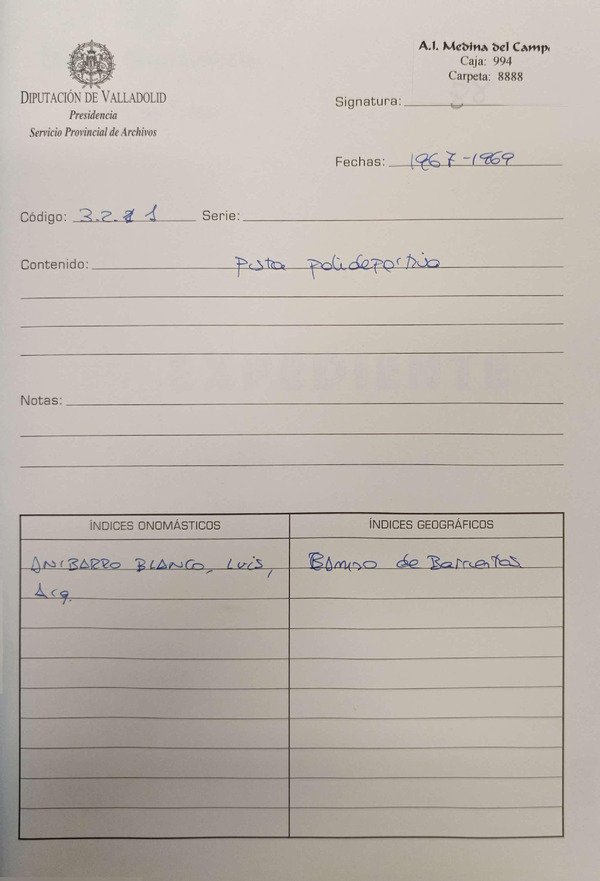 A.I. Medina del Camp
Caja: 994
Carpeta: 8888
DIPUTACIÓN DE VALLADOLID
Presidencia
Servicio Provincial de Archivos
Signatura:
Fechas: 1967-1969
Código: 3.2.1 Serie:
Contenido: Pista polideportiva
EXPEDIENTE
Notas:
ÍNDICES ONOMÁSTICOS ÍNDICES GEOGRÁFICOS
ANIBARRO BLANCO, LUIS, Barrio de Barrientos
Arq.